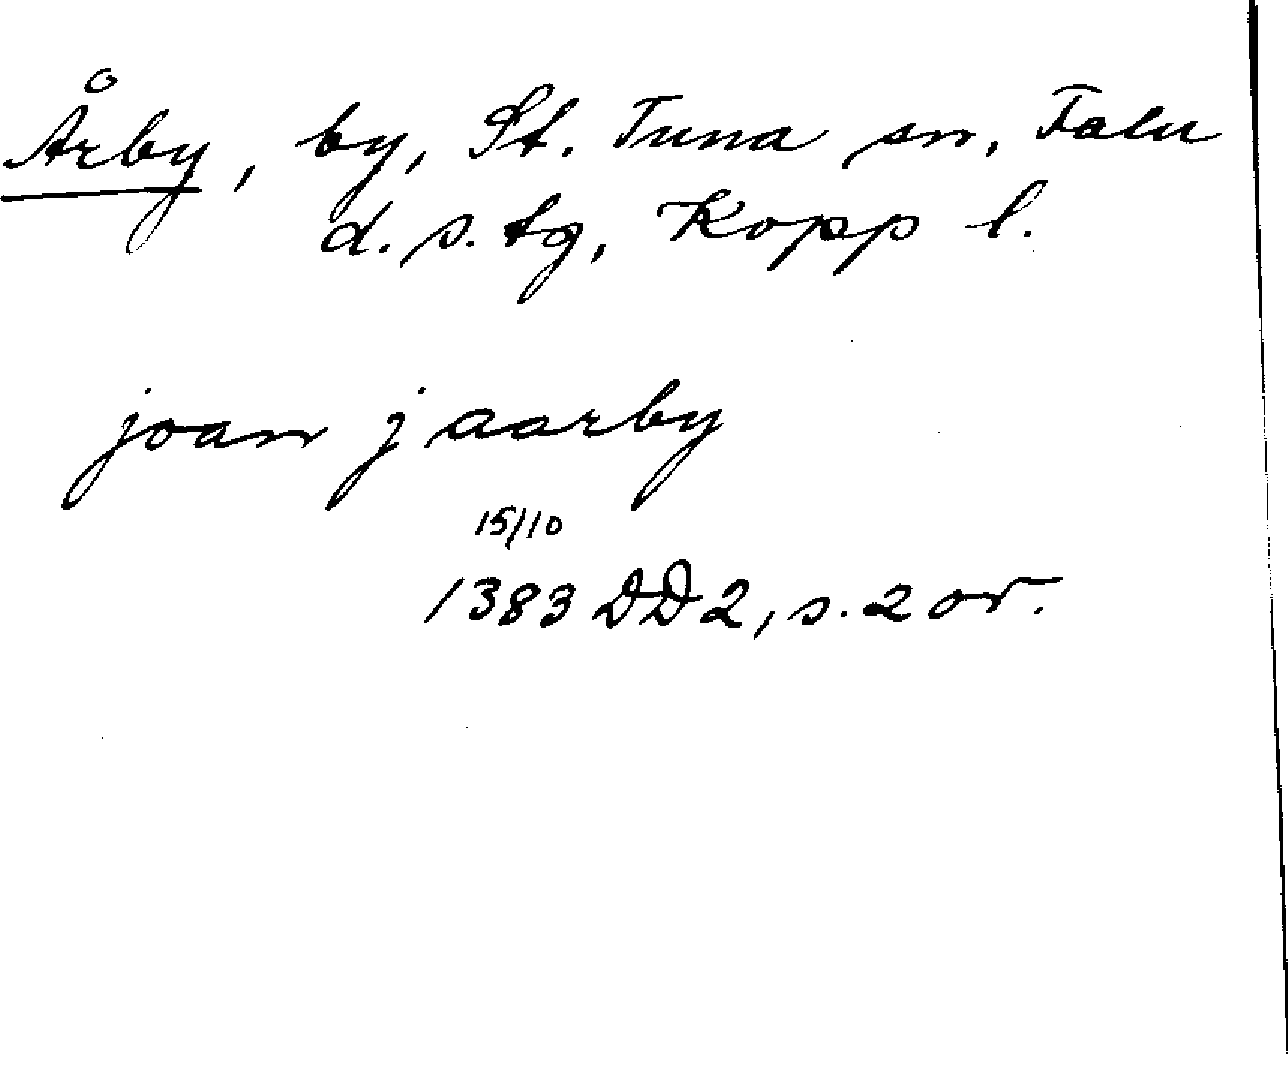 Årby, by, St. Tuna sn, Falu
d. s. tg, Kopp l.
joan j aarby
15/10
1383 DD2, s. 20r.